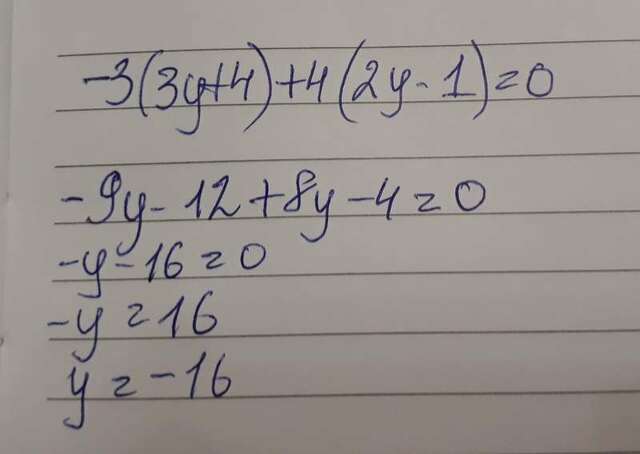 -3(3y+4)+4(2y-1)=0
-9y-12+8y-4=0
-y-16=0
-y=16
y=-16